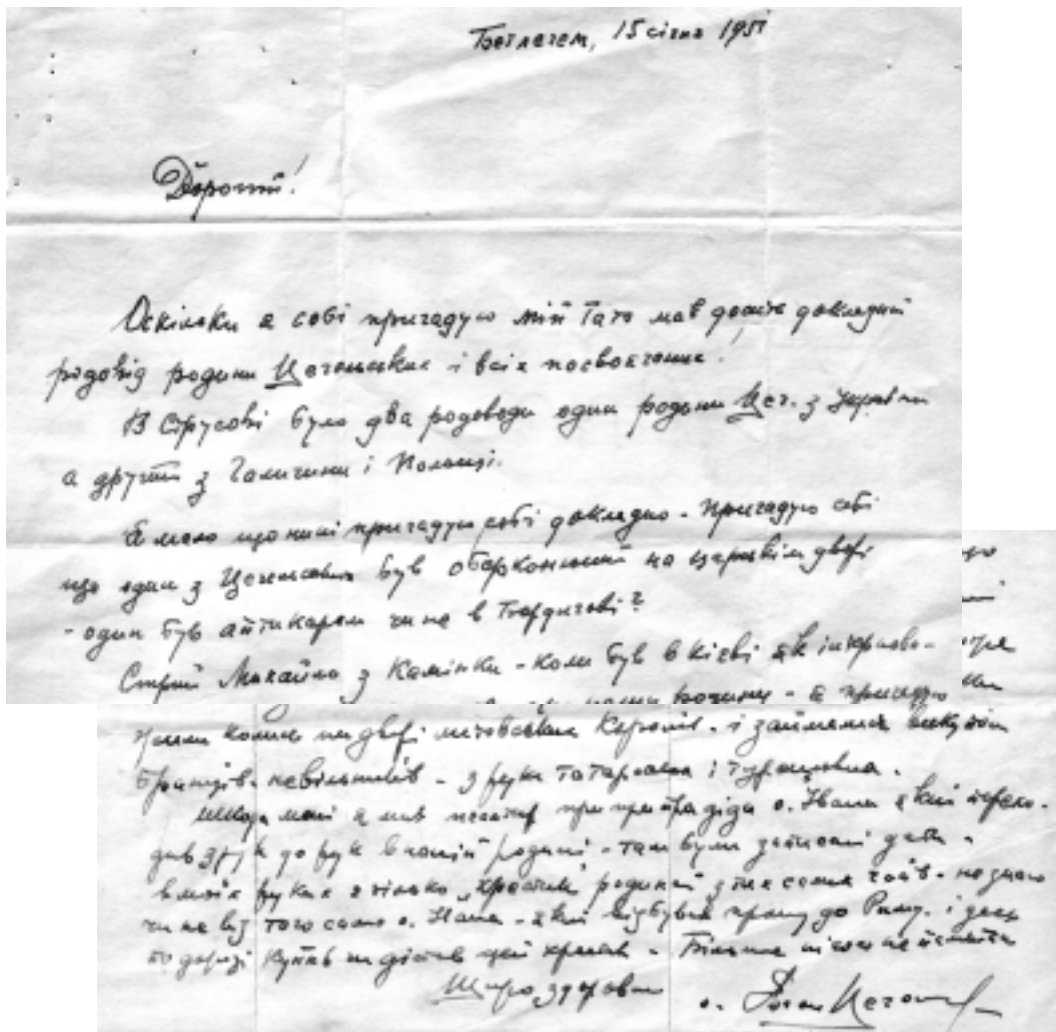 Бетлегем, 15 січня 1951
Дорогий!
Оскільки я собі пригадую мій Тато мав досить докладний
родовід родини Цегельських і всіх посвоячених.
В Струсові було два родоводи один родини Цег. з України
а другий з Галичини і Польщі.
Я мало що нині пригадую собі докладно - пригадую собі
що один з Цегельських був на царськім дворі
- один був аптикарем чи не в Бердичеві?
Стрий Михайло з Камінки - коли був в Києві як інтерново-
- я пригадую
колись на дворі литовських Королів - і займалися викупом
бранців - невільників - з рук татарських і турецьких.
Шкода мені я мав прапрадіда о. Івана який перехо-
див з рук до рук в нашій родині - там були записані дати -
в моїх руках є тільки „хрестик" родинний з тих самих часів - не знаю
чи не від того само о. Івана - який відбував прощу до Риму. і десь
по дорозі купив чи дістав цей хрестик - Більше нічого не
Щиро здоровлю о.